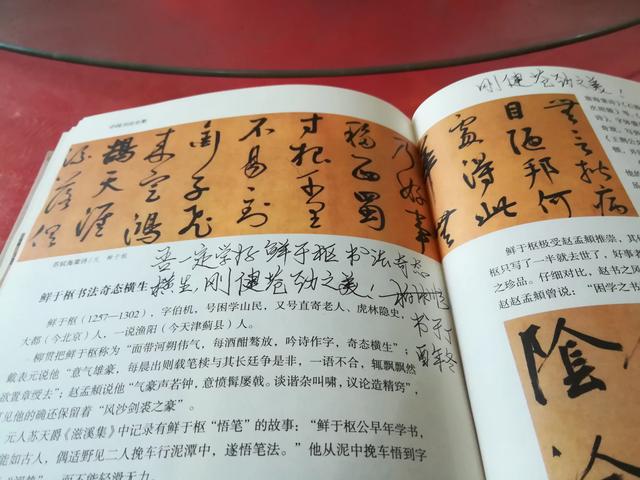 刚健苍劲之美！
无言揩病
目陋邦何
处得此
花无
乃好事
移西蜀
寸根千里
不易致
衔子飞
来定鸿
鹄天涯
流落俱
苏轼海棠诗 / 元 鲜于枢
吾一定学好鲜于枢书法奇态
横生，刚健苍劲之美！
书于
酉年冬
鲜于枢书法奇态横生
鲜于枢（1257—1302），字伯机，号困学山民，又号直寄老人、虎林隐吏，
大都（今北京）人，一说渔阳（今天津蓟县）人。
柳贯把鲜于枢称为“面带河朔伟气，每酒酣骜放，吟诗作字，奇态横生”；
戴表元说他“意气雄豪，每晨出则载笔椟与其长廷争是非，一语不合，辄飘飘然
欲置章绶去”；赵孟頫说他“气豪声若钟，意愤髯屡戟。谈谐杂叫啸，议论造精窍”，
可见他的确还保留着“风沙剑裘之豪”。
元人苏天爵《滋溪集》中记录有鲜于枢“悟笔”的故事：“鲜于枢公早年学书，
能如古人，偶适野见二人挽车行泥潭中，遂悟笔法。”他从泥中挽车悟到字
而不能轻滑无力
鲜于枢极受赵孟頫推崇，其代
枢只写了一半就去世了，好事者
之珍品。仔细对比，赵书之
赵孟頫曾说：“困学之书
陰